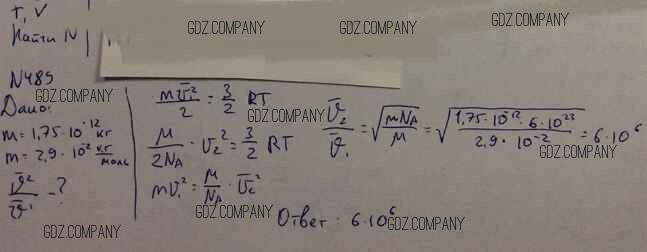 T, V
Найти N
GDZ.COMPANY GDZ.COMPANY GDZ.COMPANY
N485
Дано:
GDZ.COMPANY
m = 1,75 · 10⁻¹² кг
m = 2,9 · 10⁻² кг/моль
v̄₂/v̄₁ - ?
mv̄₁²/2 = 3/2 RT
GDZ.COMPANY
μ/2Nₐ · v₂² = 3/2 RT
mv₁² = μ/Nₐ · v̄₂²
v̄₂/v̄₁ = √(mNₐ/μ) = √(1,75 · 10⁻¹² · 6 · 10²³ / 2,9 · 10⁻²) = 6 · 10⁶
GDZ.COMPANY
GDZ.COMPANY
Ответ: 6 · 10⁶
GDZ.COMPANY
GDZ.COMPANY
GDZ.COMPANY